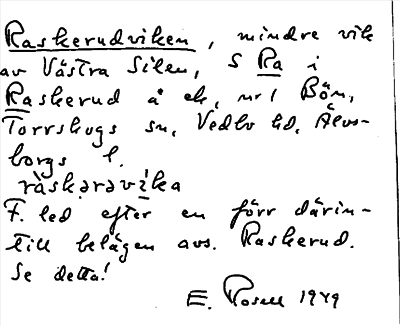 Raskerudviken, mindre vik
av Västra Silen, S Ra i
Raskerud å ek, nr 1 Bön,
Torrskogs sn, Vedbo hd, Älvs-
borgs l.
ràskərəvi̱ka
F. led efter en förr därin-
till belägen avs. Raskerud.
Se detta!
E. Rosell 1949